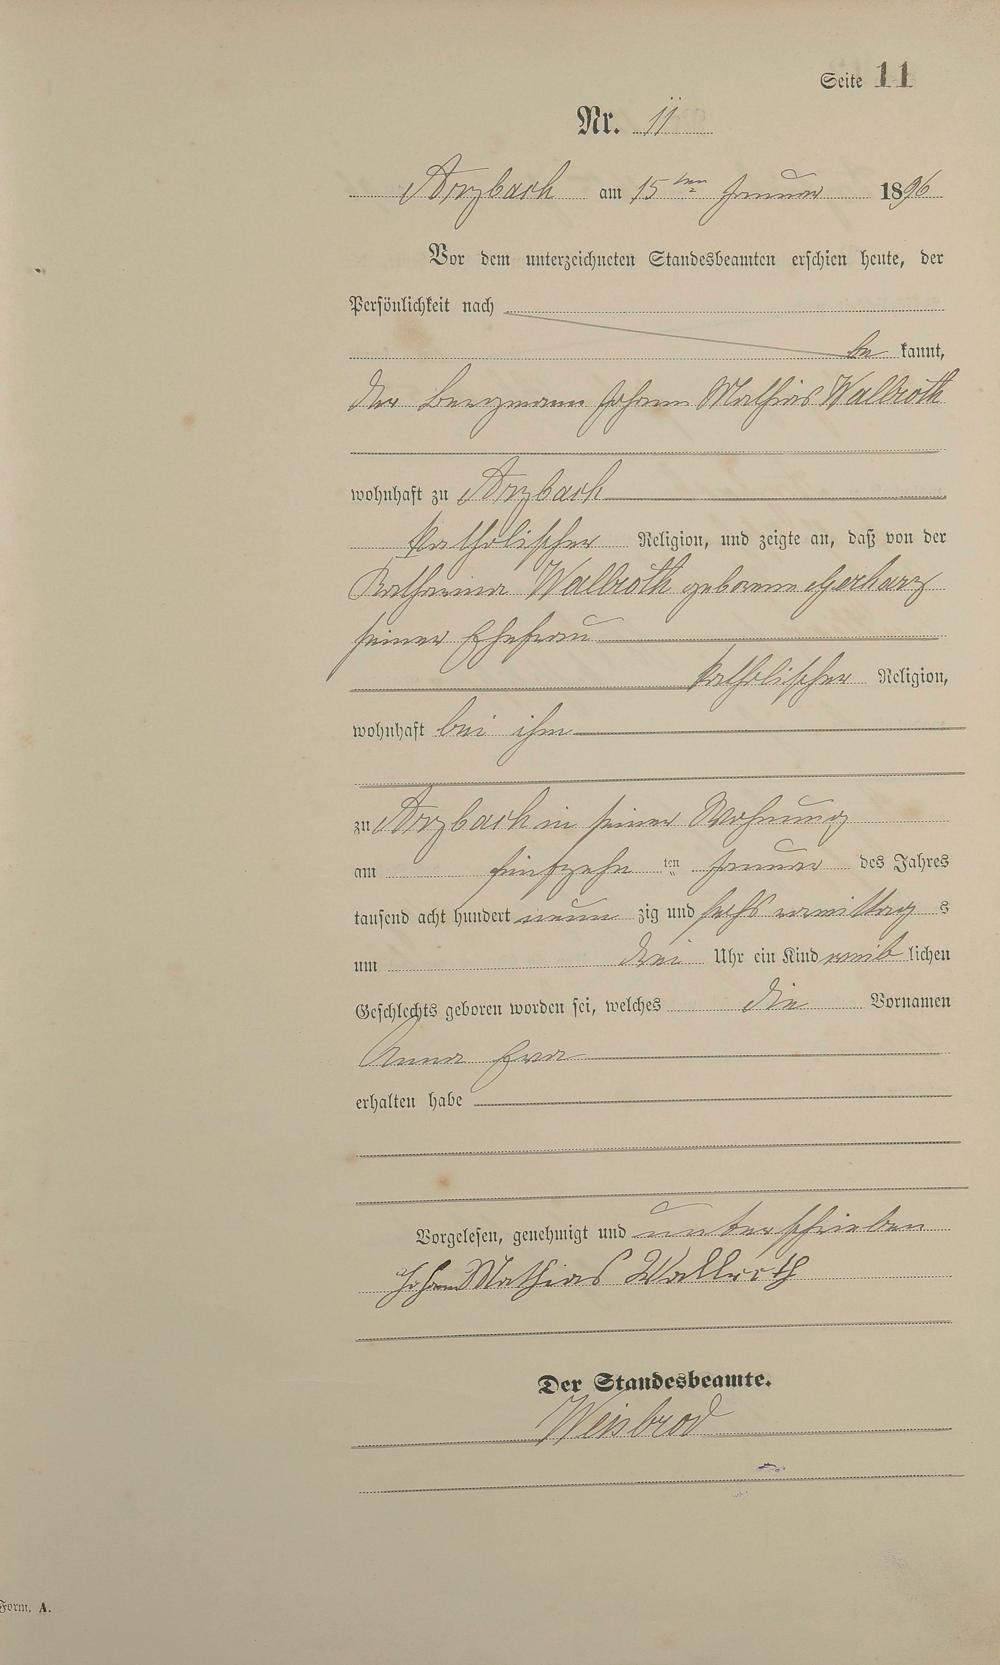 Seite 11
Nr. 11
Arzbach am 15ten Januar 1896
Vor dem unterzeichneten Standesbeamten erschien heute, der
Persönlichkeit nach
be kannt,
der Bergmann Johann Mathias Wallroth
wohnhaft zu Arzbach
katholischer Religion, und zeigte an, daß von der
Katharina Wallroth geborene Gerharz
seiner Ehefrau
katholischer Religion,
wohnhaft bei ihm
zu Arzbach in seiner Wohnung
am fünfzehn ten Januar des Jahres
tausend acht hundert neun zig und sechs vormittag s
um drei Uhr ein Kind weib lichen
Geschlechts geboren worden sei, welches die Vornamen
Anna Eva
erhalten habe
Vorgelesen, genehmigt und unterschrieben
Johann Mathias Wallroth
Der Standesbeamte.
Weisbrod
Form. A.